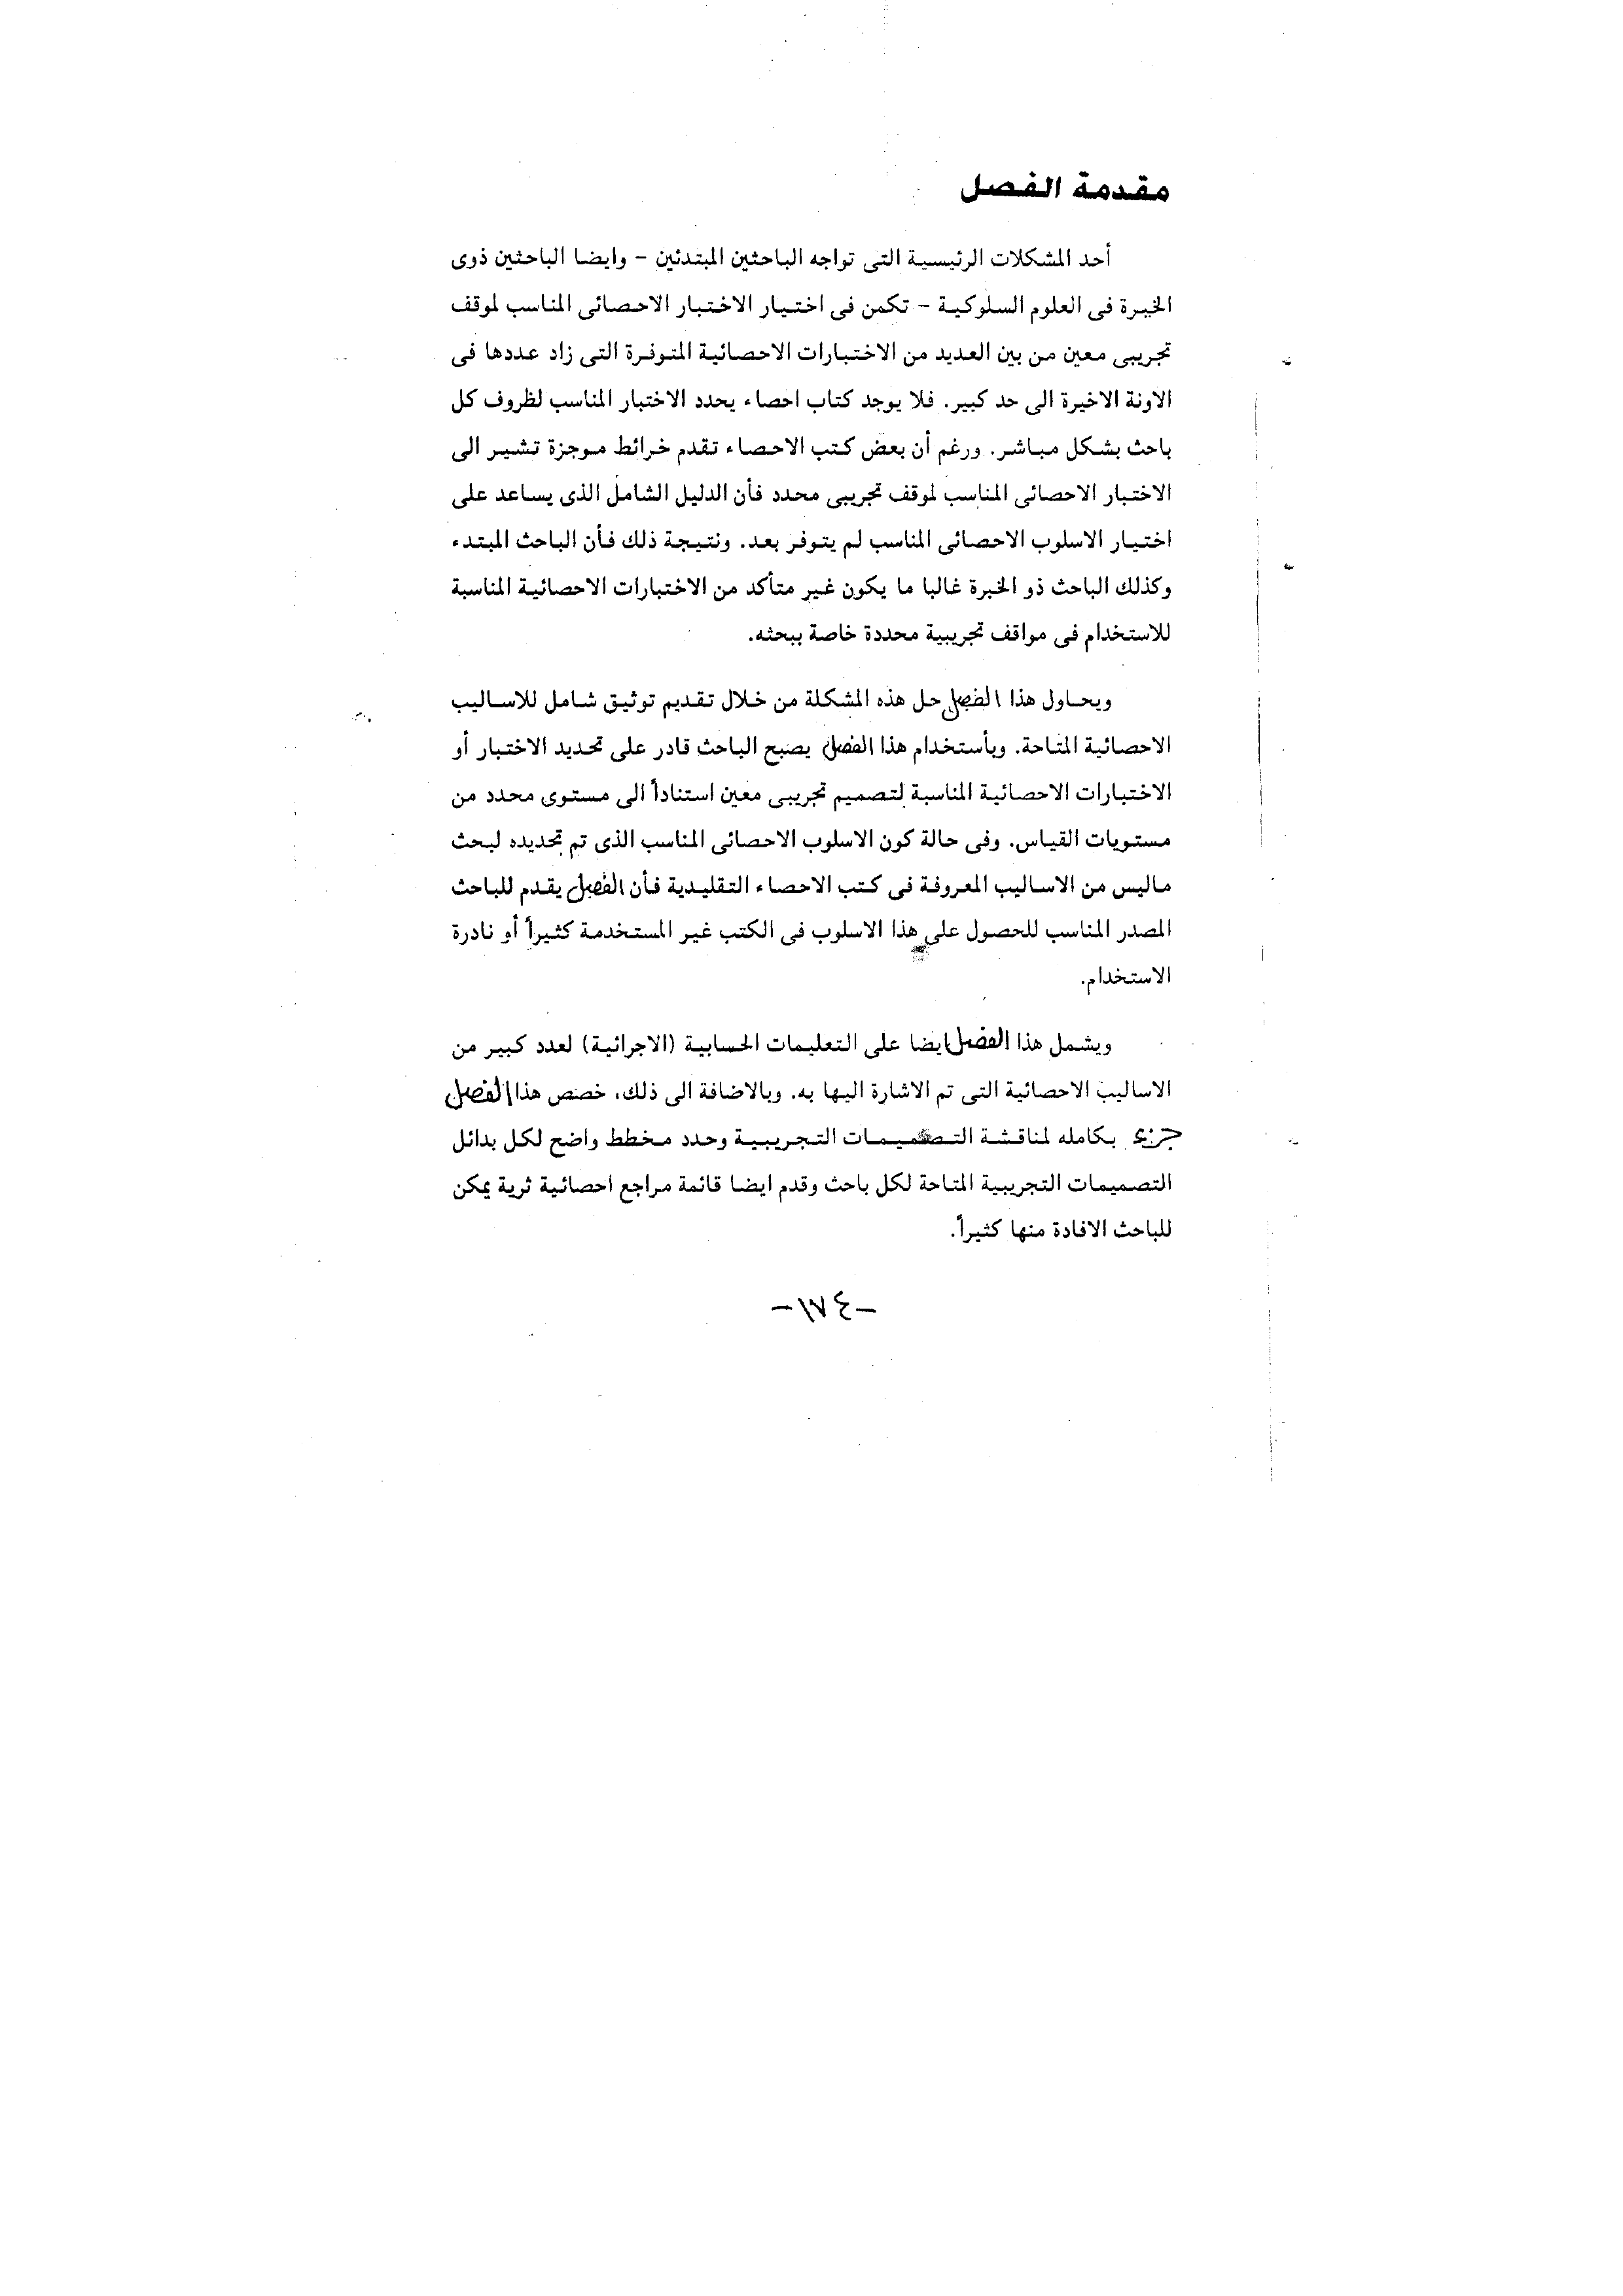 مقدمة الفصل
أحد المشكلات الرئيسية التى تواجه الباحثين المبتدئين - وايضا الباحثين ذوى
الخبرة فى العلوم السلوكية - تكمن فى اختيار الاختبار الاحصائى المناسب لموقف
تجريبى معين من بين العديد من الاختبارات الاحصائية المتوفرة التى زاد عددها فى
الاونة الاخيرة الى حد كبير. فلا يوجد كتاب احصاء يحدد الاختبار المناسب لظروف كل
باحث بشكل مباشر. ورغم أن بعض كتب الاحصاء تقدم خرائط موجزة تشير الى
الاختبار الاحصائى المناسب لموقف تجريبى محدد فأن الدليل الشامل الذى يساعد على
اختيار الاسلوب الاحصائى المناسب لم يتوفر بعد. ونتيجة ذلك فأن الباحث المبتدء
وكذلك الباحث ذو الخبرة غالبا ما يكون غير متأكد من الاختبارات الاحصائية المناسبة
للاستخدام فى مواقف تجريبية محددة خاصة ببحثه.
ويحاول هذا الفصل حل هذه المشكلة من خلال تقديم توثيق شامل للاساليب
الاحصائية المتاحة. وبأستخدام هذا الفصل يصبح الباحث قادر على تحديد الاختبار أو
الاختبارات الاحصائية المناسبة لتصميم تجريبى معين استناداً الى مستوى محدد من
مستويات القياس. وفى حالة كون الاسلوب الاحصائى المناسب الذى تم تحديده لبحث
ماليس من الاساليب المعروفة فى كتب الاحصاء التقليدية فأن الفصل يقدم للباحث
المصدر المناسب للحصول على هذا الاسلوب فى الكتب غير المستخدمة كثيراً أو نادرة
الاستخدام.
ويشمل هذا الفصل ايضا على التعليمات الحسابية (الاجرائية) لعدد كبير من
الاساليب الاحصائية التى تم الاشارة اليها به. وبالاضافة الى ذلك، خصص هذا الفصل
جزء بكامله لمناقشة التصميمات التجريبية وحدد مخطط واضح لكل بدائل
التصميمات التجريبية المتاحة لكل باحث وقدم ايضا قائمة مراجع احصائية ثرية يمكن
للباحث الافادة منها كثيراً.
-١٧٤-